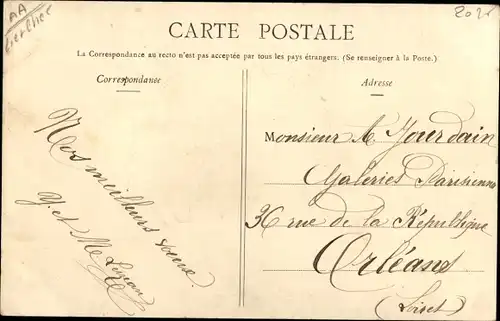 AA
CARTE POSTALE
La Correspondance au recto n'est pas acceptée par tous les pays étrangers. (Se renseigner à la Poste.)
Correspondance
Nos meilleurs
Y. et M
Adresse
Monsieur A Jourdain
Galeries Parisienne
36 rue de la République
Orléans
(Loiret)